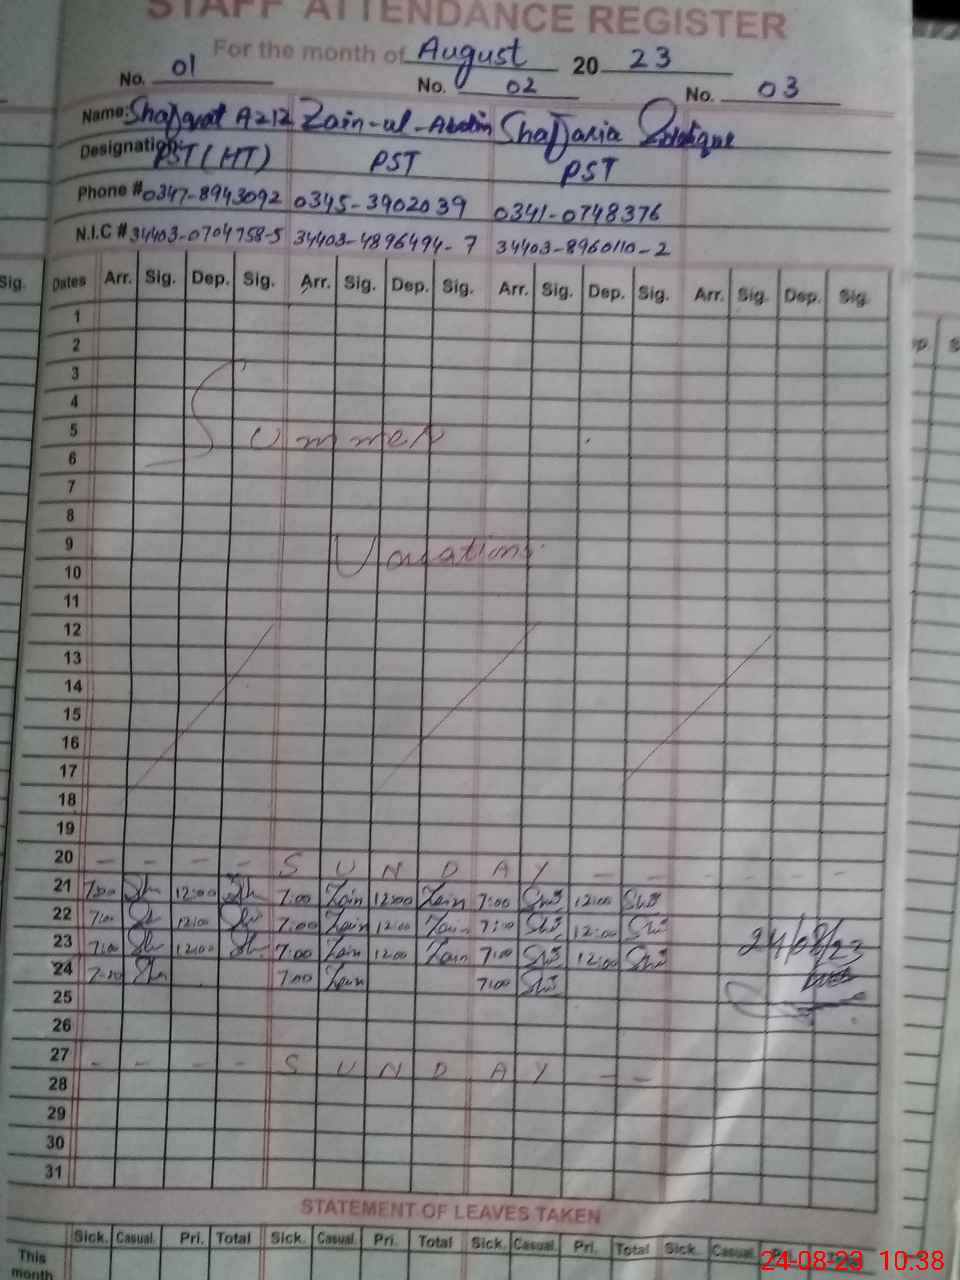 STAFF ATTENDANCE REGISTER
For the month of August 20 23
No. 01 No. 02 No. 03
Name: Shafqat Aziz Zain-ul-Abdin Shafaria
Designation: PST (HT) PST PST
Phone # 0347-8943092 0345-3902039 0341-0748376
N.I.C # 34403-0704758-5 34403-4896494-7 34403-8960110-2
Sig. Dates Arr. Sig. Dep. Sig. Arr. Sig. Dep. Sig. Arr. Sig. Dep. Sig. Arr. Sig. Dep. Sig.
1
2
3
4
5 Summer
6
7
8
9 Vacations
10
11
12
13
14
15
16
17
18
19
20 - - - - S U N D A Y - - - - - -
21 7:00 Sh 12:00 Sh 7:00 Zain 12:00 Zain 7:00 12:00
22 7:00 Sh 12:00 Sh 7:00 Zain 12:00 Zain 7:00 12:00
23 7:00 Sh 12:00 Sh 7:00 Zain 12:00 Zain 7:00 12:00 24/08/23
24 7:00 Sh 7:00 Zain 7:00
25
26
27 - - - - S U N D A Y - -
28
29
30
31
STATEMENT OF LEAVES TAKEN
Sick. Casual. Pri. Total Sick. Casual. Pri. Total Sick. Casual. Pri. Total Sick. Casual. Pri. Total
This month
24-08-23 10:38